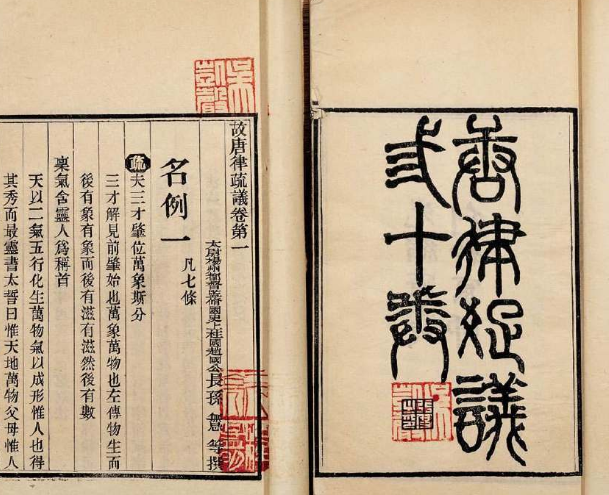 唐律疏議
弎十卷
故唐律疏議卷第一
太尉揚州都督監脩國史上柱國趙國公長孫無忌等撰
名例一 凡七條
疏夫三才肇位萬象斯分
三才解見前肇始也萬象萬物也左傳物生而
後有象有象而後有滋有滋然後有數
稟氣含靈人爲稱首
天以二氣五行化生萬物氣以成形惟人也得
其秀而最靈書太誓曰惟天地萬物父母惟人